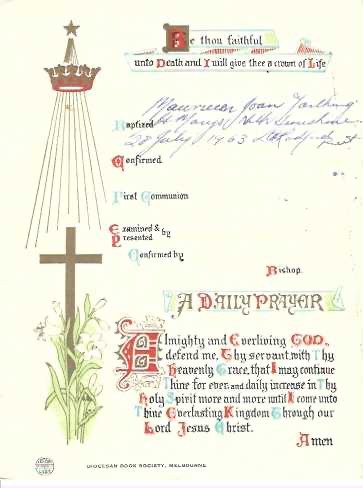 Be thou faithful
unto Death and I will give thee a crown of Life
Joan
Baptized St Mary's, Nth Sunshine
28 July 1963
Confirmed
First Communion
Examined & Presented by
Confirmed by
Bishop.
A DAILY PRAYER
Almighty and Everliving GOD,
defend me, Thy servant, with Thy
Heavenly Grace, that I may continue
Thine for ever, and daily increase in Thy
Holy Spirit more and more until I come unto
Thine Everlasting Kingdom Through our
Lord Jesus Christ.
Amen
DIOCESAN BOOK SOCIETY, MELBOURNE